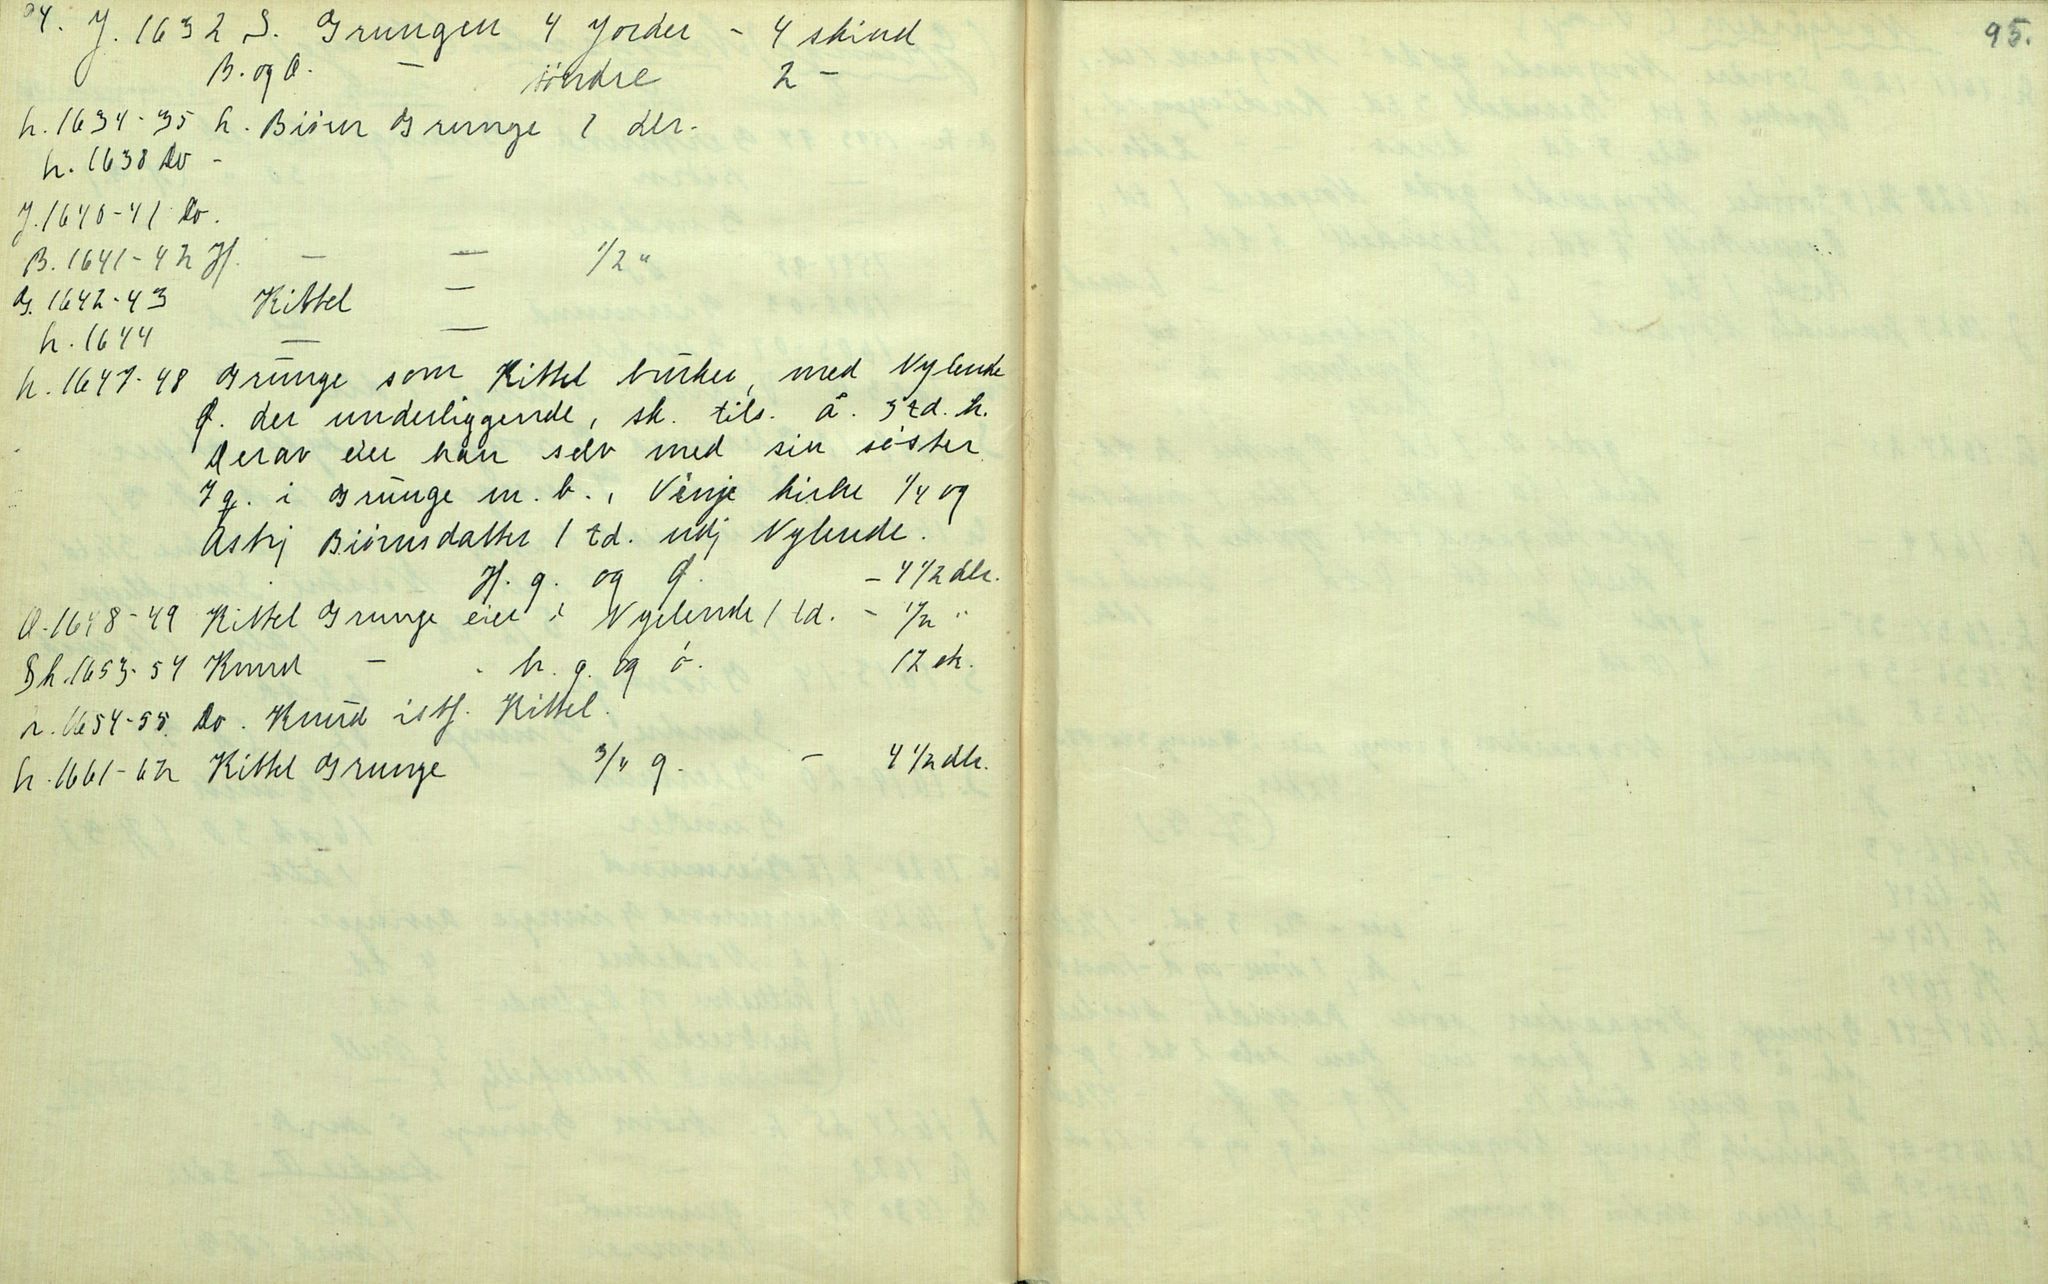 94. J. 1632 S. Grungen 4 Jorder - 4 skind
B. og O. — söndre 2 -
h. 1634-35 h. Biörn Grunge 1 dlr.
h. 1638 Do -
J. 1640-41 Do.
B. 1641-42 Hf. — — 1/2 "
G. 1642-43 Kittel —
h. 1644 — —
h. 1647-48 Grunge som Kittel bruker, med Nylende
Ø. der underliggende, sk. tils. å. 3 td. h.
Derav eier han selv med sin söster
7 q. i Grunge m. b., Vinje kirke 1/4 og
Astrj Biörnsdatter 1 td. udj Nylende.
Hf. g. og Ø. - 4 1/2 dlr.
O. 1648-49 Kittel Grunge eier i Nyelende 1 td. - 1/2 "
Sk. 1653-54 Knud — - h. g. og ö. 12 ch.
r. 1654-55 Do. Knud istf. Kittel.
h. 1661-62 Kittel Grunge 3/4 g. - 4 1/2 dlr.
95.